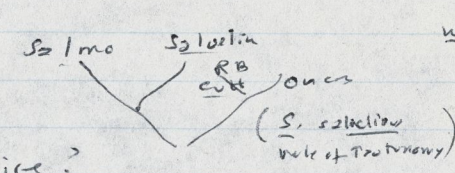 Salmo Salvelin
RB
cutt oncs
(S. salvelinus
rule of Tautonomy)